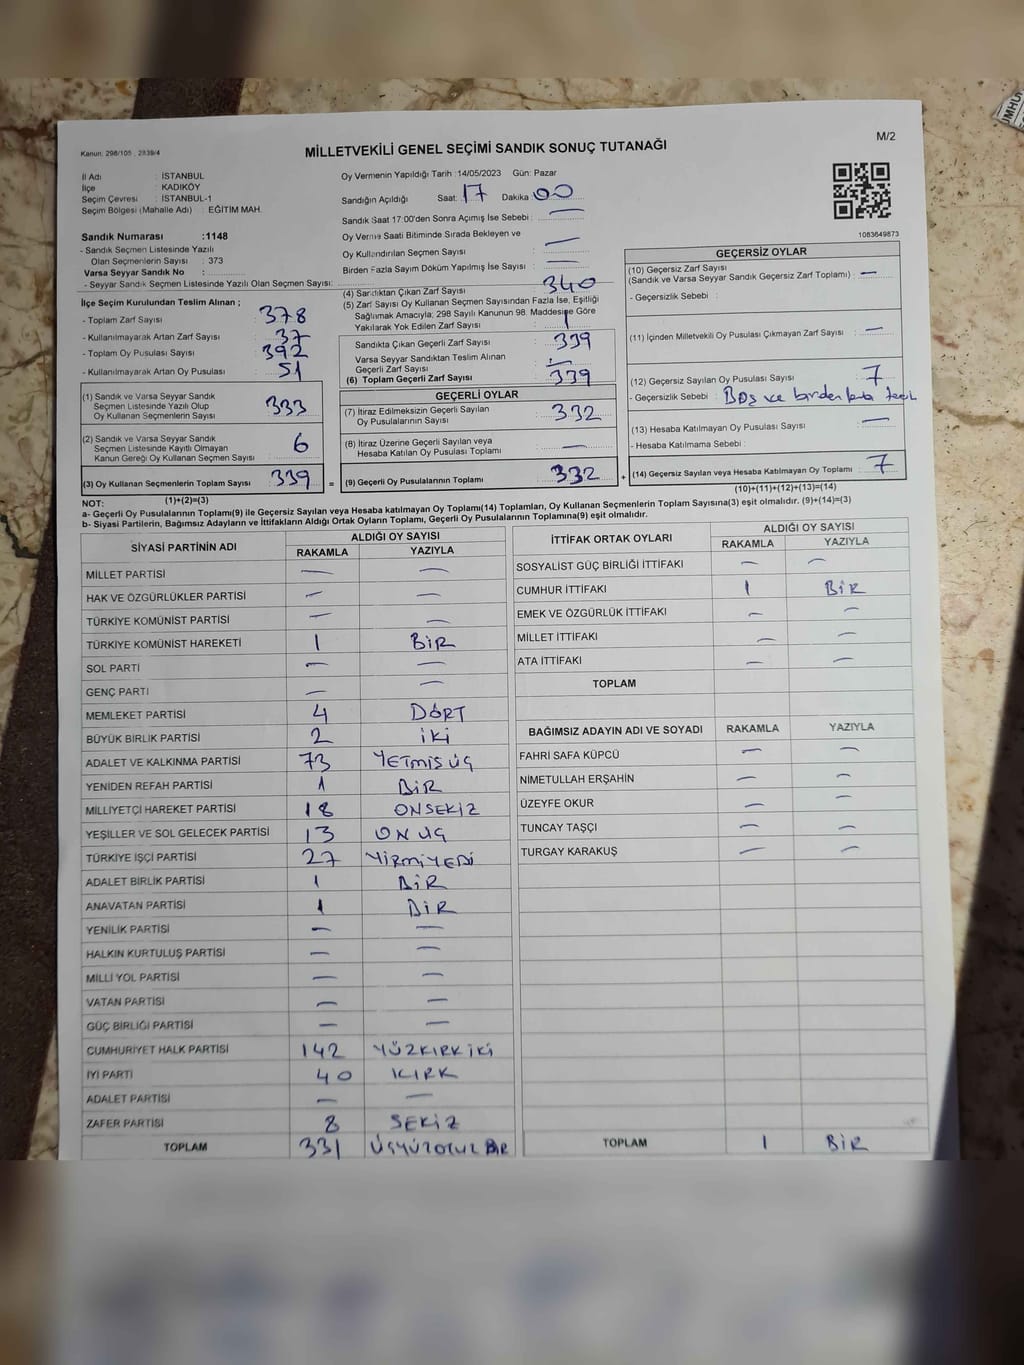 Kanun: 298/105 , 2839/4
M/2
MİLLETVEKİLİ GENEL SEÇİMİ SANDIK SONUÇ TUTANAĞI
İl Adı : İSTANBUL
İlçe : KADIKÖY
Seçim Çevresi : İSTANBUL-1
Seçim Bölgesi (Mahalle Adı) : EĞİTİM MAH.
Sandık Numarası :1148
- Sandık Seçmen Listesinde Yazılı
Olan Seçmenlerin Sayısı : 373
Varsa Seyyar Sandık No :
- Seyyar Sandık Seçmen Listesinde Yazılı Olan Seçmen Sayısı:
Oy Vermenin Yapıldığı Tarih :14/05/2023 Gün: Pazar
Sandığın Açıldığı Saat: 17 Dakika 00
Sandık Saat 17:00'den Sonra Açımış İse Sebebi : —
Oy Verme Saati Bitiminde Sırada Bekleyen ve
Oy Kullandırılan Seçmen Sayısı : —
Birden Fazla Sayım Döküm Yapılmış İse Sayısı : —
1083649873
İlçe Seçim Kurulundan Teslim Alınan ;
- Toplam Zarf Sayısı : 378
- Kullanılmayarak Artan Zarf Sayısı : 37
- Toplam Oy Pusulası Sayısı : 392
- Kullanılmayarak Artan Oy Pusulası : 51
(1) Sandık ve Varsa Seyyar Sandık
Seçmen Listesinde Yazılı Olup
Oy Kullanan Seçmenlerin Sayısı : 333
(2) Sandık ve Varsa Seyyar Sandık
Seçmen Listesinde Kayıtlı Olmayan
Kanun Gereği Oy Kullanan Seçmen Sayısı : 6
(3) Oy Kullanan Seçmenlerin Toplam Sayısı : 339
(1)+(2)=(3)
(4) Sandıktan Çıkan Zarf Sayısı : 340
(5) Zarf Sayısı Oy Kullanan Seçmen Sayısından Fazla İse, Eşitliği
Sağlamak Amacıyla; 298 Sayılı Kanunun 98. Maddesine Göre
Yakılarak Yok Edilen Zarf Sayısı : 1
Sandıkta Çıkan Geçerli Zarf Sayısı : 339
Varsa Seyyar Sandıktan Teslim Alınan
Geçerli Zarf Sayısı : —
(6) Toplam Geçerli Zarf Sayısı : 339
GEÇERLİ OYLAR
(7) İtiraz Edilmeksizin Geçerli Sayılan
Oy Pusulalarının Sayısı : 332
(8) İtiraz Üzerine Geçerli Sayılan veya
Hesaba Katılan Oy Pusulası Toplamı : —
= (9) Geçerli Oy Pusulalarının Toplamı : 332 +
GEÇERSİZ OYLAR
(10) Geçersiz Zarf Sayısı
(Sandık ve Varsa Seyyar Sandık Geçersiz Zarf Toplamı) : —
- Geçersizlik Sebebi :
(11) İçinden Milletvekili Oy Pusulası Çıkmayan Zarf Sayısı : —
(12) Geçersiz Sayılan Oy Pusulası Sayısı : 7
- Geçersizlik Sebebi : Boş ve birden
(13) Hesaba Katılmayan Oy Pusulası Sayısı : —
- Hesaba Katılmama Sebebi :
(14) Geçersiz Sayılan veya Hesaba Katılmayan Oy Toplamı : 7
(10)+(11)+(12)+(13)=(14)
NOT:
a- Geçerli Oy Pusulalarının Toplamı(9) ile Geçersiz Sayılan veya Hesaba Katılmayan Oy Toplamı(14) Toplamları, Oy Kullanan Seçmenlerin Toplam Sayısına(3) eşit olmalıdır. (9)+(14)=(3)
b- Siyasi Partilerin, Bağımsız Adayların ve İttifakların Aldığı Ortak Oyların Toplamı, Geçerli Oy Pusulalarının Toplamına(9) eşit olmalıdır.
SİYASİ PARTİNİN ADI ALDIĞI OY SAYISI
RAKAMLA YAZIYLA
MİLLET PARTİSİ — —
HAK VE ÖZGÜRLÜKLER PARTİSİ — —
TÜRKİYE KOMÜNİST PARTİSİ — —
TÜRKİYE KOMÜNİST HAREKETİ 1 BİR
SOL PARTİ — —
GENÇ PARTİ — —
MEMLEKET PARTİSİ 4 DÖRT
BÜYÜK BİRLİK PARTİSİ 2 İKİ
ADALET VE KALKINMA PARTİSİ 73 YETMİŞ ÜÇ
YENİDEN REFAH PARTİSİ 1 BİR
MİLLİYETÇİ HAREKET PARTİSİ 18 ONSEKİZ
YEŞİLLER VE SOL GELECEK PARTİSİ 13 ON ÜÇ
TÜRKİYE İŞÇİ PARTİSİ 27 YİRMİYEDİ
ADALET BİRLİK PARTİSİ 1 BİR
ANAVATAN PARTİSİ 1 BİR
YENİLİK PARTİSİ — —
HALKIN KURTULUŞ PARTİSİ — —
MİLLİ YOL PARTİSİ — —
VATAN PARTİSİ — —
GÜÇ BİRLİĞİ PARTİSİ — —
CUMHURİYET HALK PARTİSİ 142 YÜZKIRK İKİ
İYİ PARTİ 40 KIRK
ADALET PARTİSİ — —
ZAFER PARTİSİ 8 SEKİZ
TOPLAM 331 ÜÇYÜZOTUZ BİR
İTTİFAK ORTAK OYLARI ALDIĞI OY SAYISI
RAKAMLA YAZIYLA
SOSYALİST GÜÇ BİRLİĞİ İTTİFAKI — —
CUMHUR İTTİFAKI 1 BİR
EMEK VE ÖZGÜRLÜK İTTİFAKI — —
MİLLET İTTİFAKI — —
ATA İTTİFAKI — —
TOPLAM
BAĞIMSIZ ADAYIN ADI VE SOYADI RAKAMLA YAZIYLA
FAHRİ SAFA KÜPCÜ — —
NİMETULLAH ERŞAHİN — —
ÜZEYFE OKUR — —
TUNCAY TAŞÇI — —
TURGAY KARAKUŞ — —
TOPLAM 1 BİR